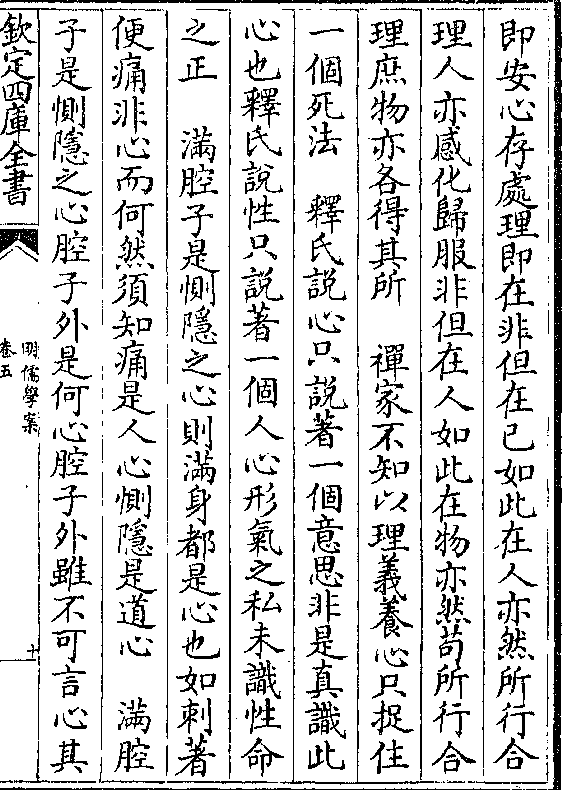 即安心存處理即在非但在已如此在人亦然所行合
理人亦感化歸服非但在人如此在物亦然苟所行合
理庶物亦各得其所　禪家不知以理義養心只捉住
一個死法　釋氏説心只説著一個意思非是真識此
心也釋氏説性只説著一個人心形氣之私未識性命
之正　滿腔子是惻隱之心則滿身都是心也如刺著
便痛非心而何然須知痛是人心惻隱是道心　滿腔
子是惻隱之心腔子外是何心腔子外雖不可言心其
欽定四庫全書
明儒學案
卷五
十